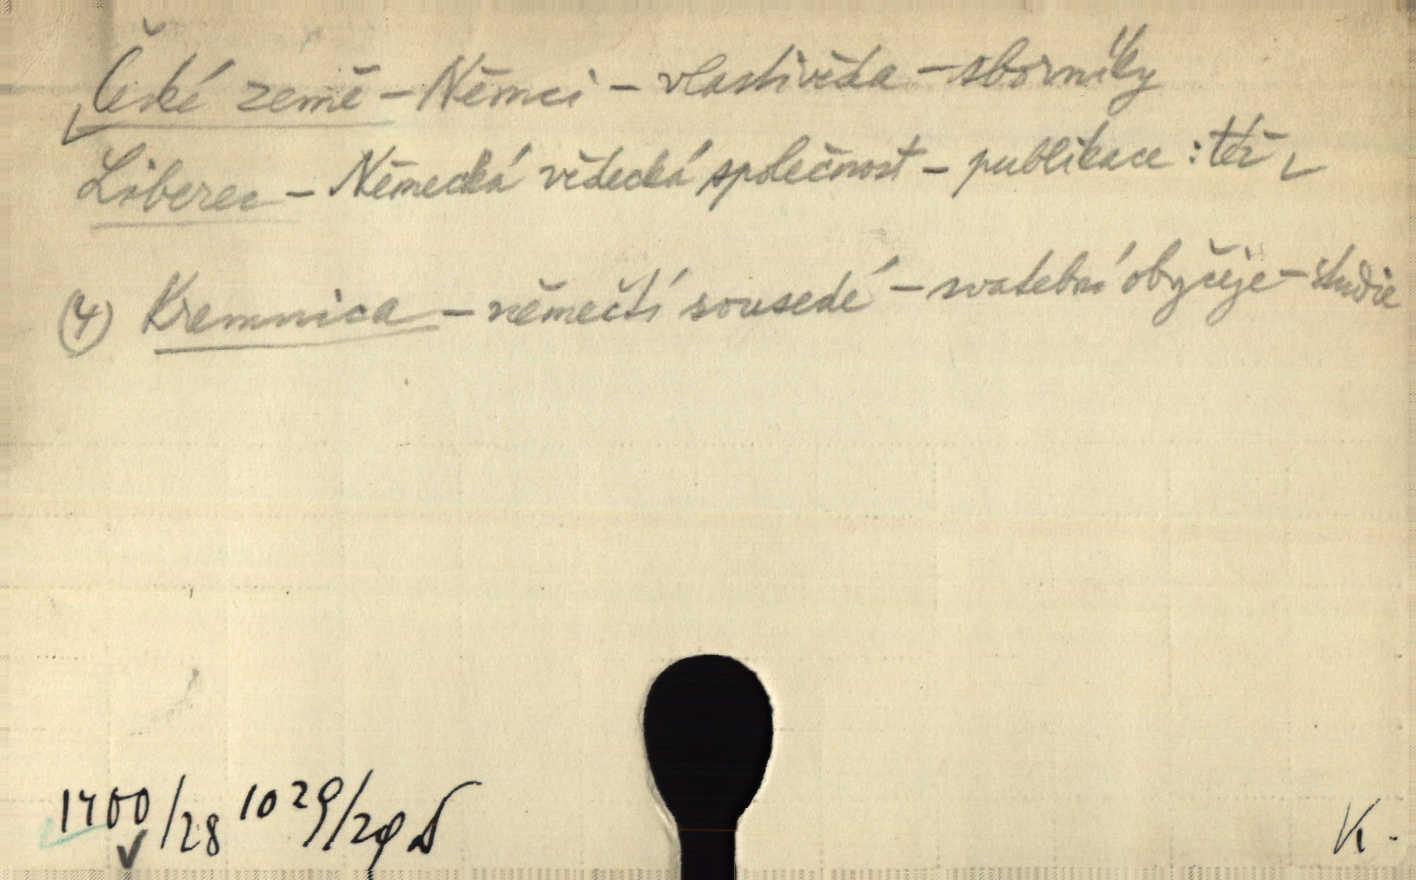 České země - Němci - vlastivěda - sborníky
Liberec - Německá vědecká společnost - publikace : též
(4) Kremnica - němečtí sousedé - svatební obyčeje - studie
1400/28 1029/29
K.